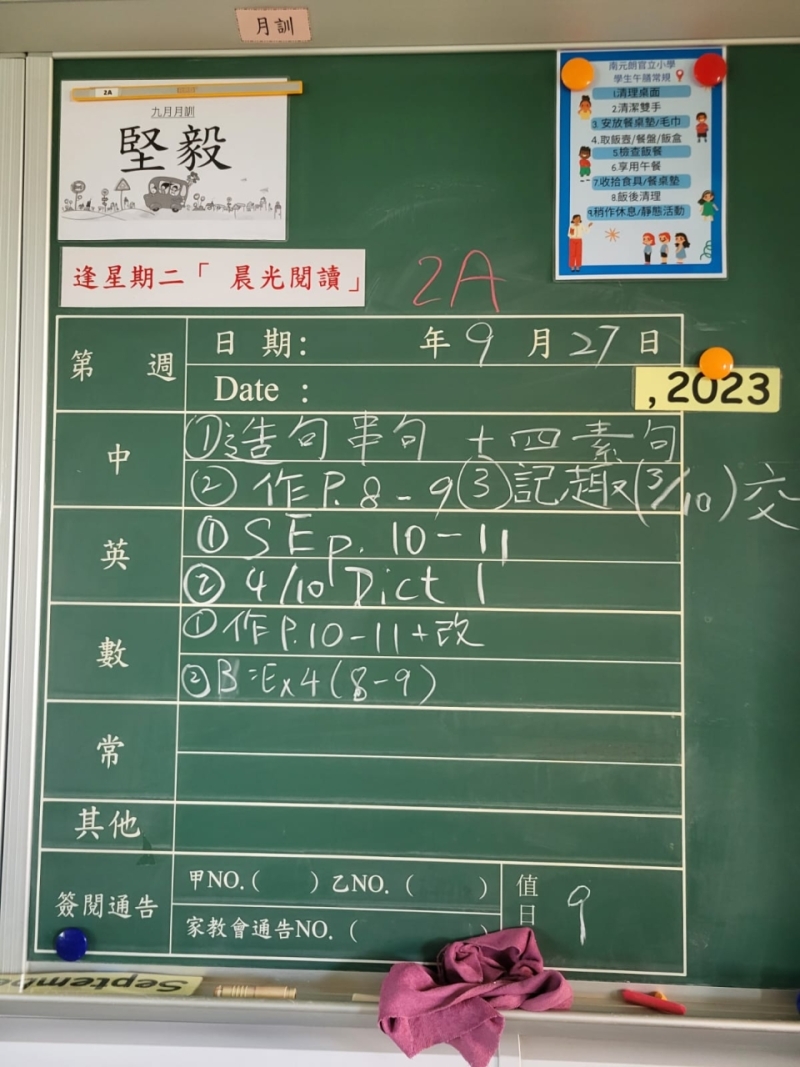 月訓
2A
九月月訓
堅毅
逢星期二「 晨光閱讀」
2A
南元朗官立小學
學生午膳常規
1.清理桌面
2.清潔雙手
3. 安放餐桌墊/毛巾
4.取飯壺/餐盤/飯盒
5.檢查飯餐
6.享用午餐
7.收拾食具/餐桌墊
8.飯後清理
9.稍作休息/靜態活動
第 週
日 期： 年 9 月 27 日
Date :
, 2023
中
①造句串句 十四素句
② 作 P. 8 - 9 ③記趣(3/10)交
英
① S E p. 10 - 11
② 4/10 Dict 1
數
① 作 P. 10 - 11 + 改
② B Ex 4 (8 - 9)
常
其他
簽閱通告
甲NO. ( ) 乙NO. ( )
家教會通告NO. ( )
值日
9
Septembe